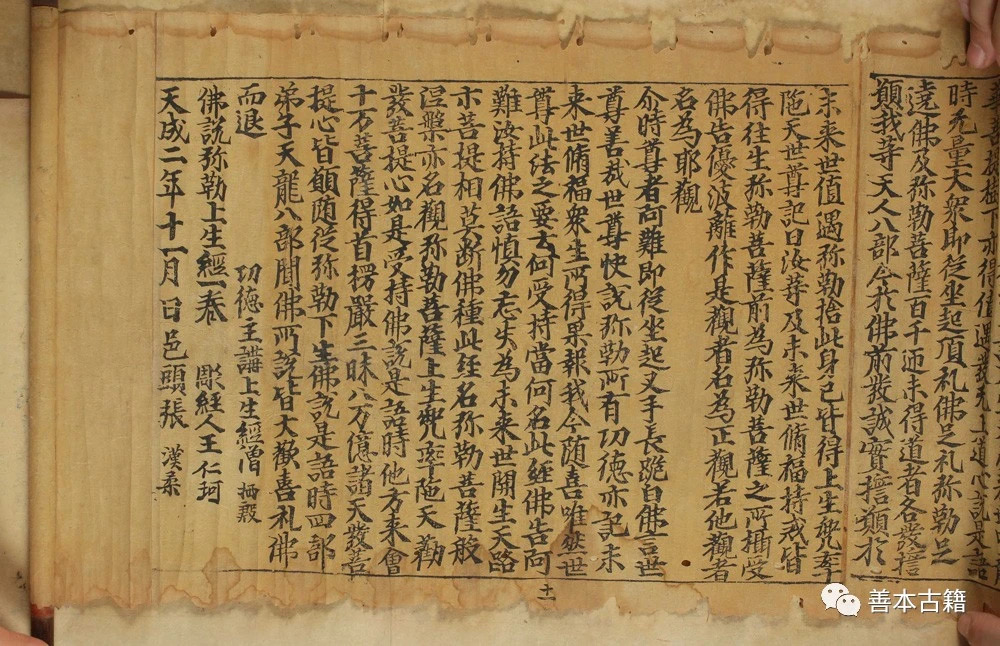 時无量大衆即從坐起頂礼佛足礼弥勒足
遶佛及弥勒菩薩百千迊未得道者各發誓
願我等天人八部今於佛前發誠實誓願於
未来世值遇弥勒捨此身已皆得上生兜率
陁天世尊記曰汝等及未来世脩福持戒皆
得往生弥勒菩薩前為弥勒菩薩之所攝受
佛告優波離作是觀者名為正觀若他觀者
名為耶觀
尒時尊者阿難即從坐起叉手長跪白佛言世
尊善哉世尊快説弥勒所有功徳亦記未
来世脩福衆生所得果報我今随喜唯然世
尊此法之要云何受持當何名此經佛告阿
難汝持佛語慎勿忘失為未来世開生天路
示菩提相莫断佛種此經名弥勒菩薩般
涅槃亦名觀弥勒菩薩上生兜率陁天勸
發菩提心如是受持佛説是語時他方来會
十万菩薩得首楞嚴三昧八万億諸天發菩
提心皆願随從弥勒下生佛説是語時四部
弟子天龍八部聞佛所説皆大歡喜礼佛
而退 功徳主講上生經僧 栖殷
佛説弥勒上生經一卷 彫經人王仁珂
天成二年十一月日邑頭張 漢柔
十一
善本古籍